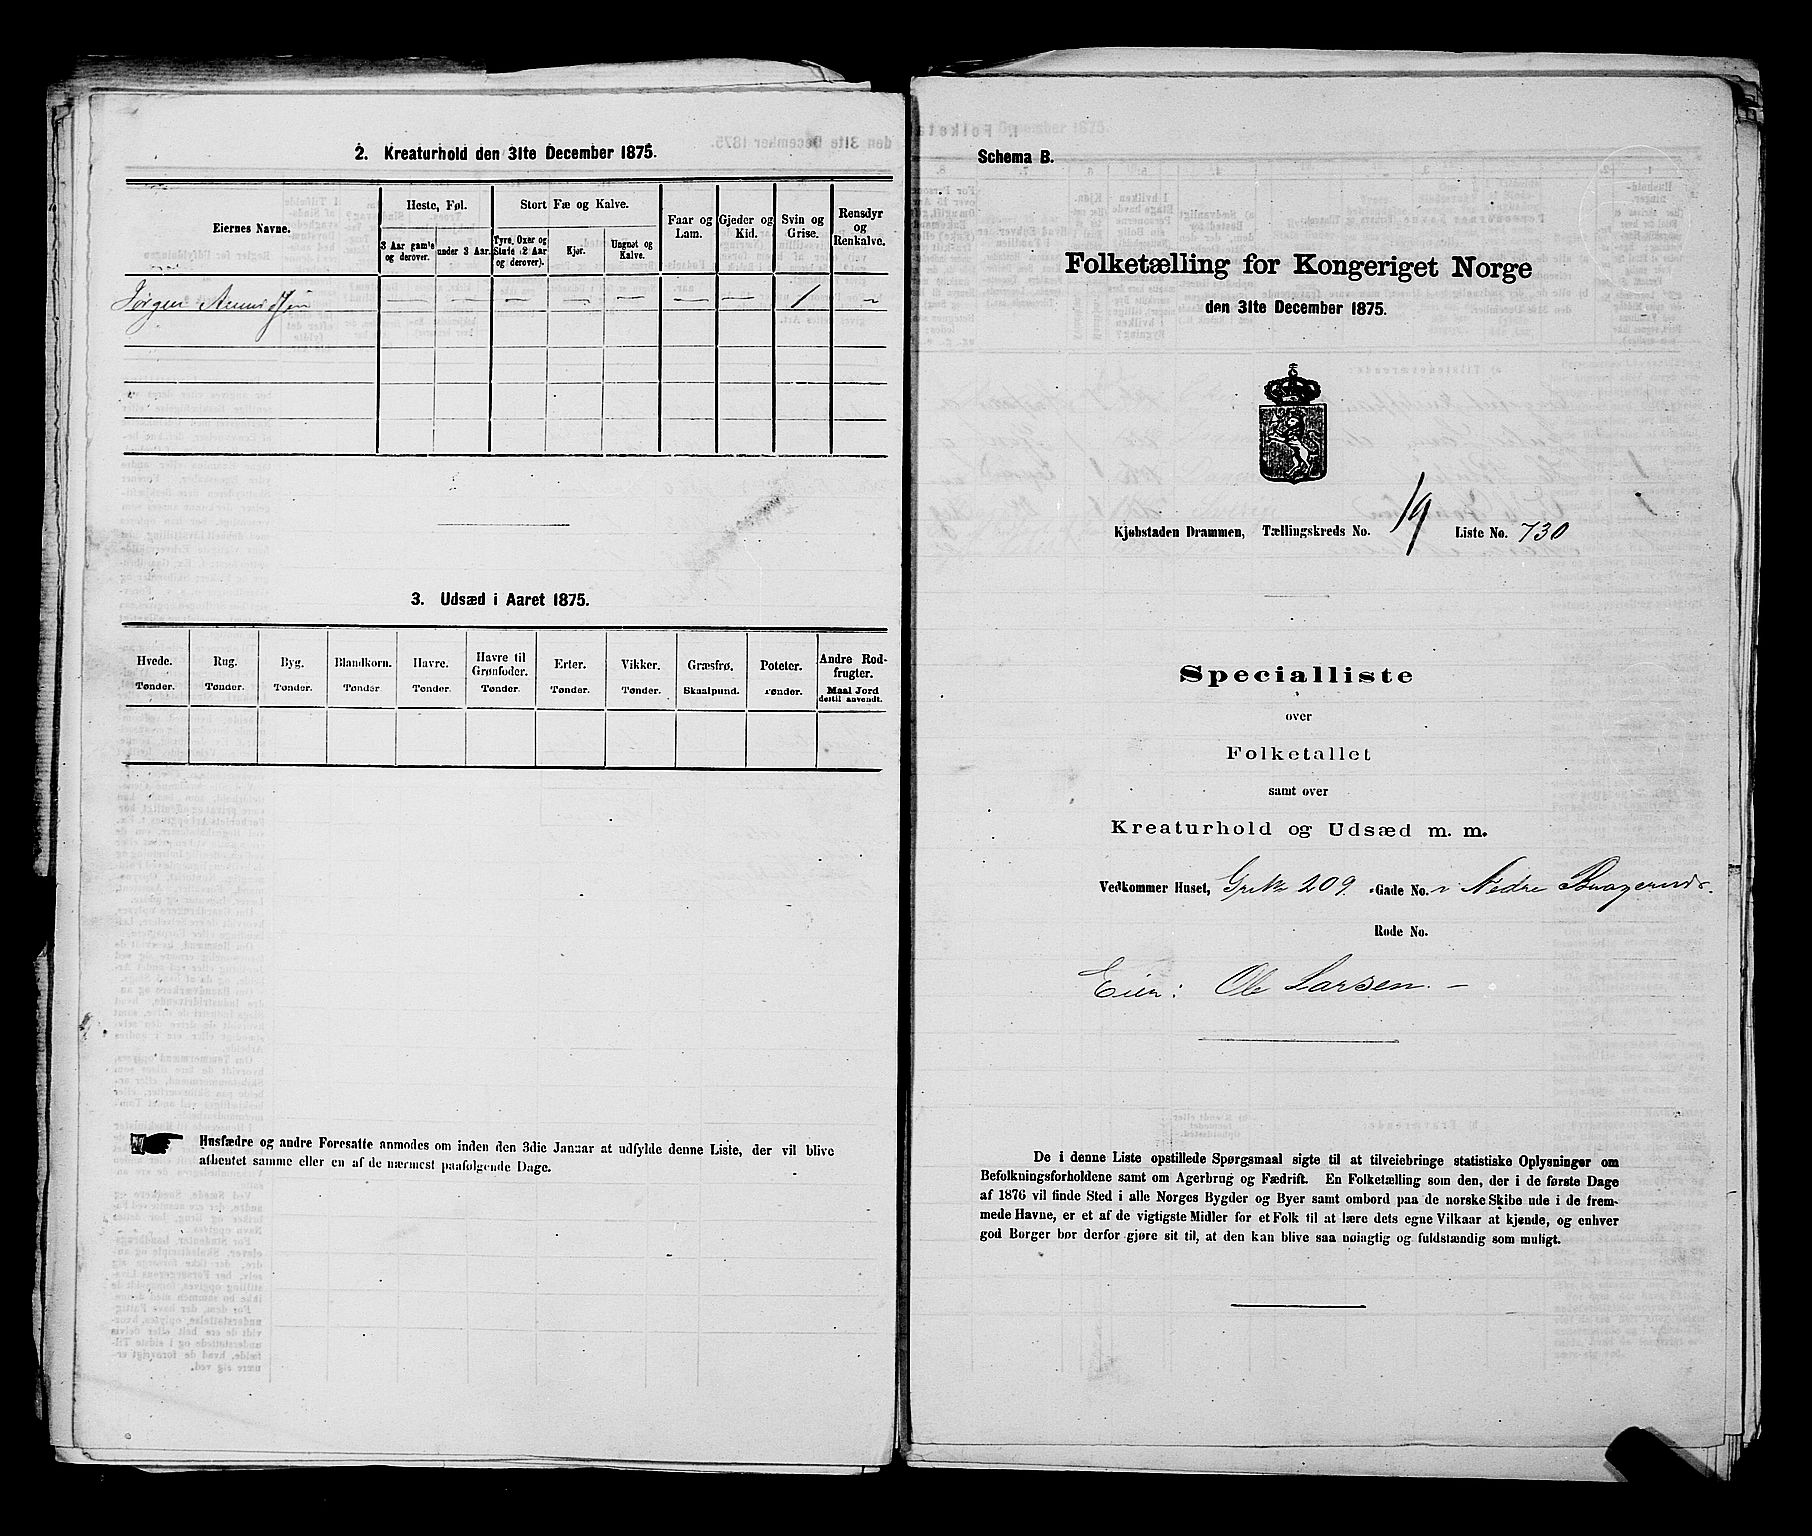 2. Kreaturhold den 31te December 1875.
Eiernes Navne.
Heste, Føl.
Stort Fæ og Kalve.
Faar og Lam.
Gjeder og Kid.
Svin og Grise.
Rensdyr og Renkalve.
3 Aar gamle og derover.
under 3 Aar.
Tyre, Oxer og Stude (2 Aar og derover).
Kjør.
Ungnøt og Kalve.
Jørgen — — — — — — — 1 —
3. Udsæd i Aaret 1875.
Hvede. Rug. Byg. Blandkorn. Havre. Havre til Grønfoder. Erter. Vikker. Græsfrø. Poteter. Andre Rodfrugter.
Tønder. Tønder. Tønder. Tønder Tønder. Tønder. Tønder. Tønder. Skaalpund. Tønder. Maal Jord dertil anvendt.
Husfædre og andre Foresatte anmodes om inden den 3die Januar at udfylde denne Liste, der vil blive
afhentet samme eller en af de nærmest paafølgende Dage.
Schema B.
Folketælling for Kongeriget Norge
den 31te December 1875.
Kjøbstaden Drammen, Tællingskreds No. 19 Liste No. 730
Specialliste
over
Folketallet
samt over
Kreaturhold og Udsæd m. m.
Vedkommer Huset, 209. Gade No. Nedre
Rode No.
Eier: Ole Larsen. –
De i denne Liste opstillede Spørgsmaal sigte til at tilveiebringe statistiske Oplysninger om
Befolkningsforholdene samt om Agerbrug og Fædrift. En Folketælling som den, der i de første Dage
af 1876 vil finde Sted i alle Norges Bygder og Byer samt ombord paa de norske Skibe ude i de frem-
mede Havne, er et af de vigtigste Midler for et Folk til at lære dets egne Vilkaar at kjende, og enhver
god Borger bør derfor gjøre sit til, at den kan blive saa nøiagtig og fuldstændig som muligt.